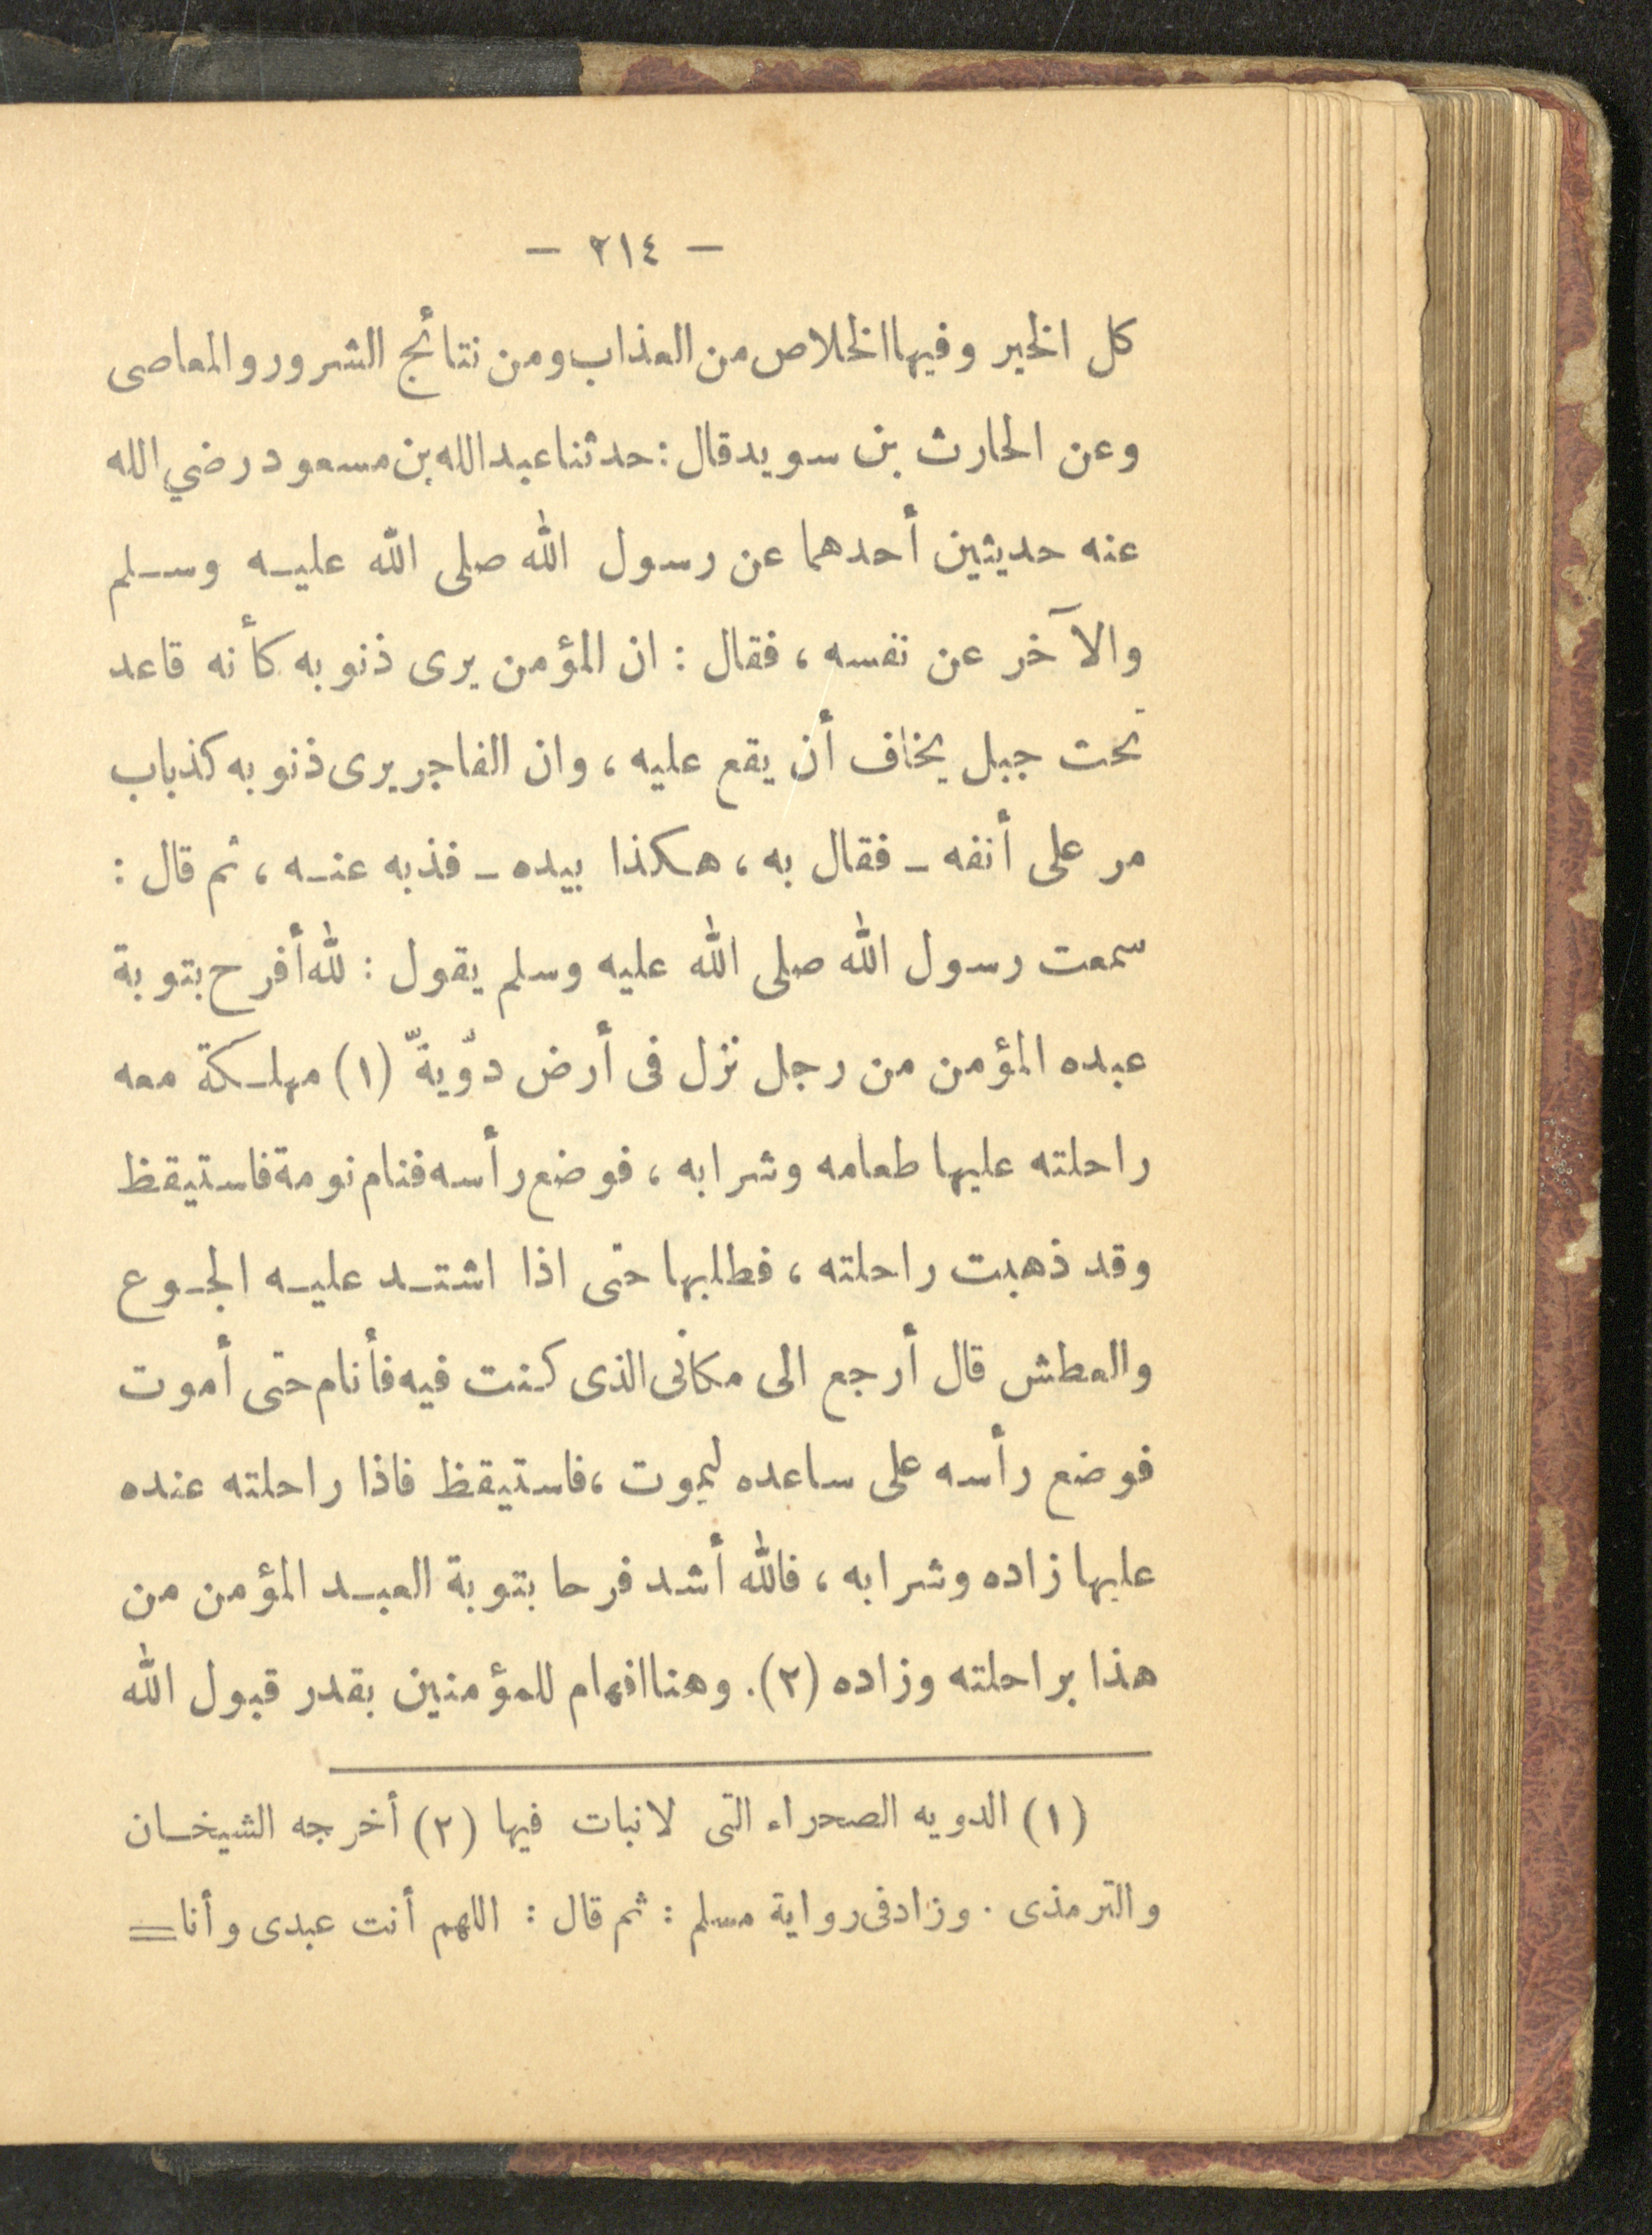 — ٢١٤ —
كل الخير وفيها الخلاص من العذاب ومن نتائج الشرور والمعاصى
وعن الحارث بن سويد قال : حدثنا عبد الله بن مسعود رضي الله
عنه حديثين أحدهما عن رسول الله صلى الله عليه وسلم
والآخر عن نفسه ، فقال : ان المؤمن يرى ذنوبه كأنه قاعد
تحت جبل يخاف أن يقع عليه ، وان الفاجر يرى ذنوبه كذباب
مر على أنفه ــ فقال به ، هكذا بيده ــ فذبه عنه ، ثم قال :
سمعت رسول الله صلى الله عليه وسلم يقول : لله أفرح بتوبة
عبده المؤمن من رجل نزل فى أرض دوّيةّ (١) مهلكة معه
راحلته عليها طعامه وشرابه ، فوضع رأسه فنام نومة فاستيقظ
وقد ذهبت راحلته ، فطلبها حتى اذا اشتد عليه الجوع
والعطش قال أرجع الى مكانى الذى كنت فيه فأنام حتى أموت
فوضع رأسه على ساعده ليموت ، فاستيقظ فاذا راحلته عنده
عليها زاده وشرابه ، فالله أشد فرحا بتوبة العبد المؤمن من
هذا براحلته وزاده (٢). وهنا افهام للمؤمنين بقدر قبول الله
(١) الدويه الصحراء التى لا نبات فيها (٢) أخرجه الشيخان
والترمذى . وزاد فى رواية مسلم : ثم قال : اللهم أنت عبدى وأنا =